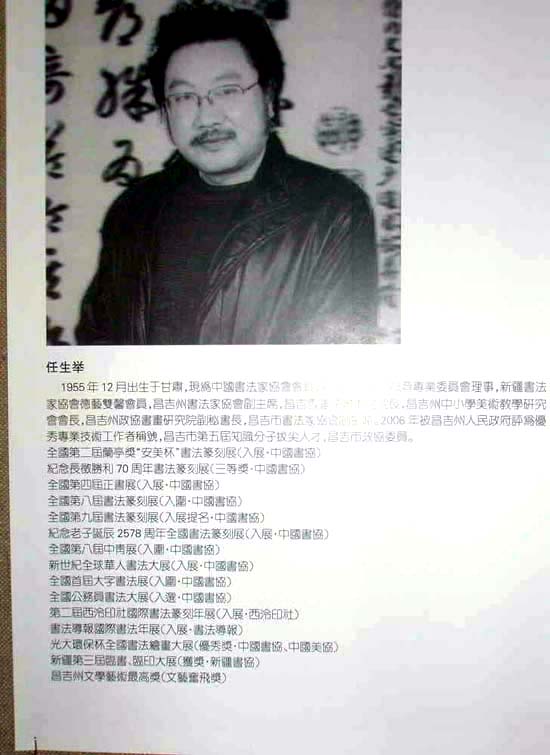 任生举
1955年12月出生于甘肃,現爲中國書法家協會會員 專業委員會理事,新疆書法
家協會德藝雙馨會員,昌吉州書法家協會副主席,昌吉 昌吉州中小學美術教學研究
會會長,昌吉州政協書畫研究院副秘書長,昌吉市書法家協會 2006年被昌吉州人民政府評爲優
秀專業技術工作者稱號,昌吉市第五屆知識分子拔尖人才,昌吉市政協委員。
全國第二屆蘭亭獎“安美杯”書法篆刻展(入展·中國書協)
紀念長徵勝利70周年書法篆刻展(三等獎·中國書協)
全國第四屆正書展(入展·中國書協)
全國第八屆書法篆刻展(入圍·中國書協)
全國第九屆書法篆刻展(入展提名·中國書協)
紀念老子誕辰2578周年全國書法篆刻展(入展·中國書協)
全國第八屆中青展(入圍·中國書協)
新世紀全球華人書法大展(入展·中國書協)
全國首屆大字書法展(入圍·中國書協)
全國公務員書法大展(入選·中國書協)
第二屆西泠印社國際書法篆刻年展(入展·西泠印社)
書法導報國際書法年展(入展·書法導報)
光大環保杯全國書法繪畫大展(優秀獎·中國書協、中國美協)
新疆第三屆臨書、臨印大展(獲獎·新疆書協)
昌吉州文學藝術最高獎(文藝奮飛獎)